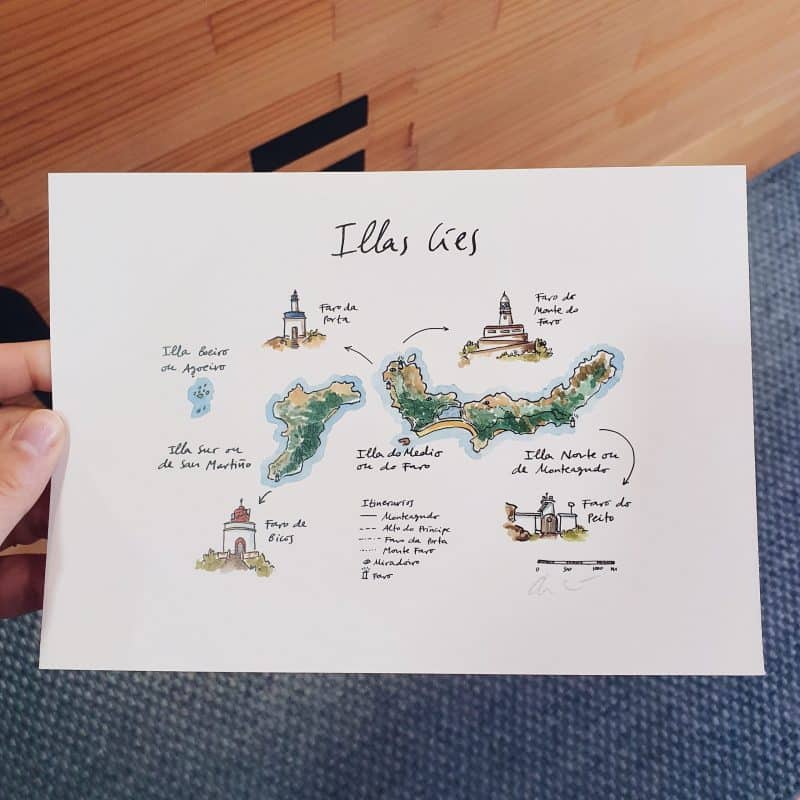 Illas Cíes
Faro da
Porta
Faro do
Monte do
Faro
Illa Boeiro
ou Agoeiro
Illa Sur ou
de San Martiño
Illa do Medio
ou do Faro
Illa Norte ou
de Monteagudo
Faro de
Bicos
Itinerarios
Monteagudo
Alto do Príncipe
Faro da Porta
Monte Faro
Miradoiro
Faro
Faro do
Peito
0 500 1000 M